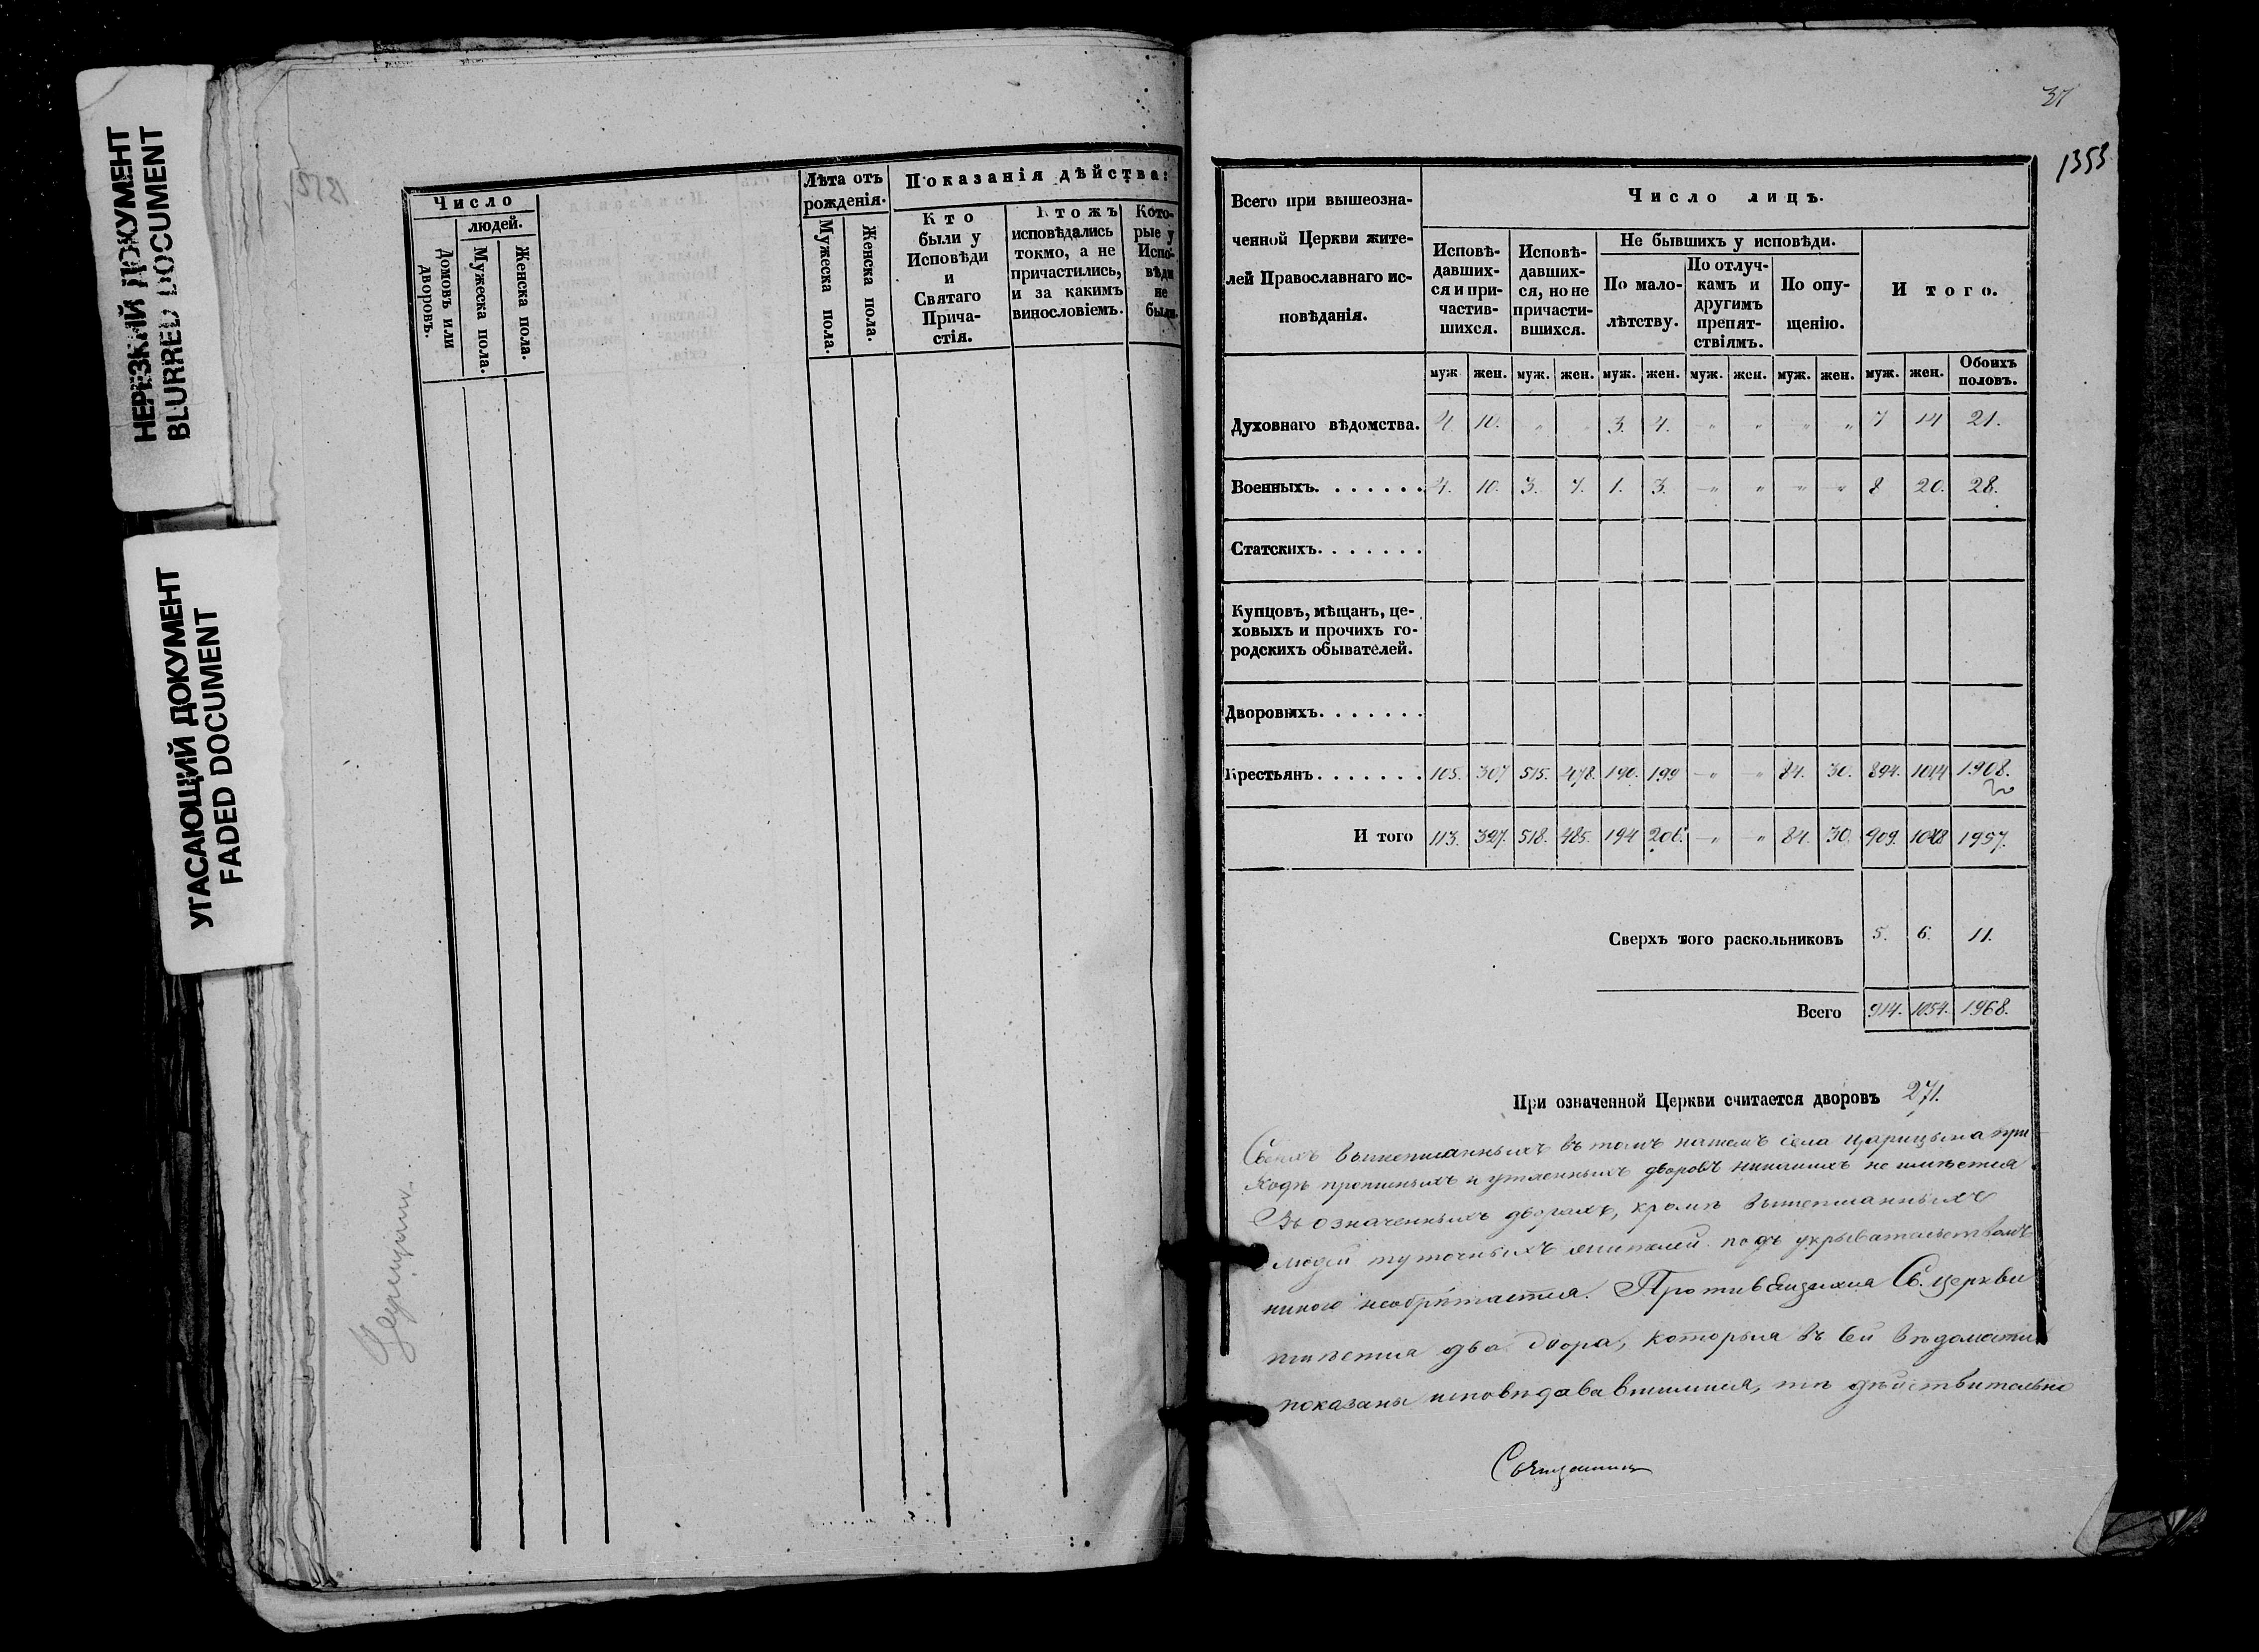 НЕРЕЗКИЙ ДОКУМЕНТ
BLURRED DOCUMENT
УГАСАЮЩИЙ ДОКУМЕНТ
FADED DOCUMENT
Число
людей.
Домовъ или дворовъ.
Мужеска пола.
Женска пола.
Лѣта отъ рожденія.
Мужеска пола.
Женска пола.
Показанія дѣйства:
Кто были у Исповѣди и Святаго Прича-стія.
Ктожъ исповѣдались токмо, а не причастились, и за какимъ винословіемъ.
Кото-рые у Испо-вѣди не были.
37
1353
Всего при вышеозна-
ченной Церкви жите-
лей Православнаго ис-
повѣданія.
Число лицъ.
Исповѣ-давших-ся и при-частив-шихся.
Исповѣ-давших-ся, но не причасти-вшихся.
Не бывшихъ у исповѣди.
По мало-лѣтству.
По отлуч-камъ и другимъ препят-ствіямъ.
По опу-щенію.
И того.
муж жен. муж. жен. муж. жен. муж. жен. муж. жен. муж. жен. Обоихъ половъ.
Духовнаго вѣдомства. 4. 10. " " 3. 4. " " " " 7 14 21.
Военныхъ. . . . . . . 4. 10. 3. 7. 1. 3. " " " " 8 20. 28.
Статскихъ. . . . . . .
Купцовъ, мѣщанъ, це-
ховыхъ и прочихъ го-
родскихъ обывателей.
Дворовыхъ. . . . . . .
Крестьянъ. . . . . . . 105. 307 515. 478. 190. 199 " " 84. 30. 894. 1014 1908.
И того 113. 327. 518. 485. 194 206. " " 84. 30. 909. 1048 1957.
Сверхъ того раскольниковъ 5. 6. 11.
Всего 914. 1054. 1968.
При означенной Церкви считается дворовъ 271.
вышеписанныхъ въ томъ нашемъ села Царицына при
ходѣ прописныхъ и утаенныхъ дворовъ никакихъ не имѣется
Въ означенныхъ дворахъ, кромѣ вышеписанныхъ
людей жителей подъ укрывательствомъ
никого необрѣтается. Св. церкви
имѣется два двора, которыя въ сей вѣдомости
показаны тѣ дѣйствительно